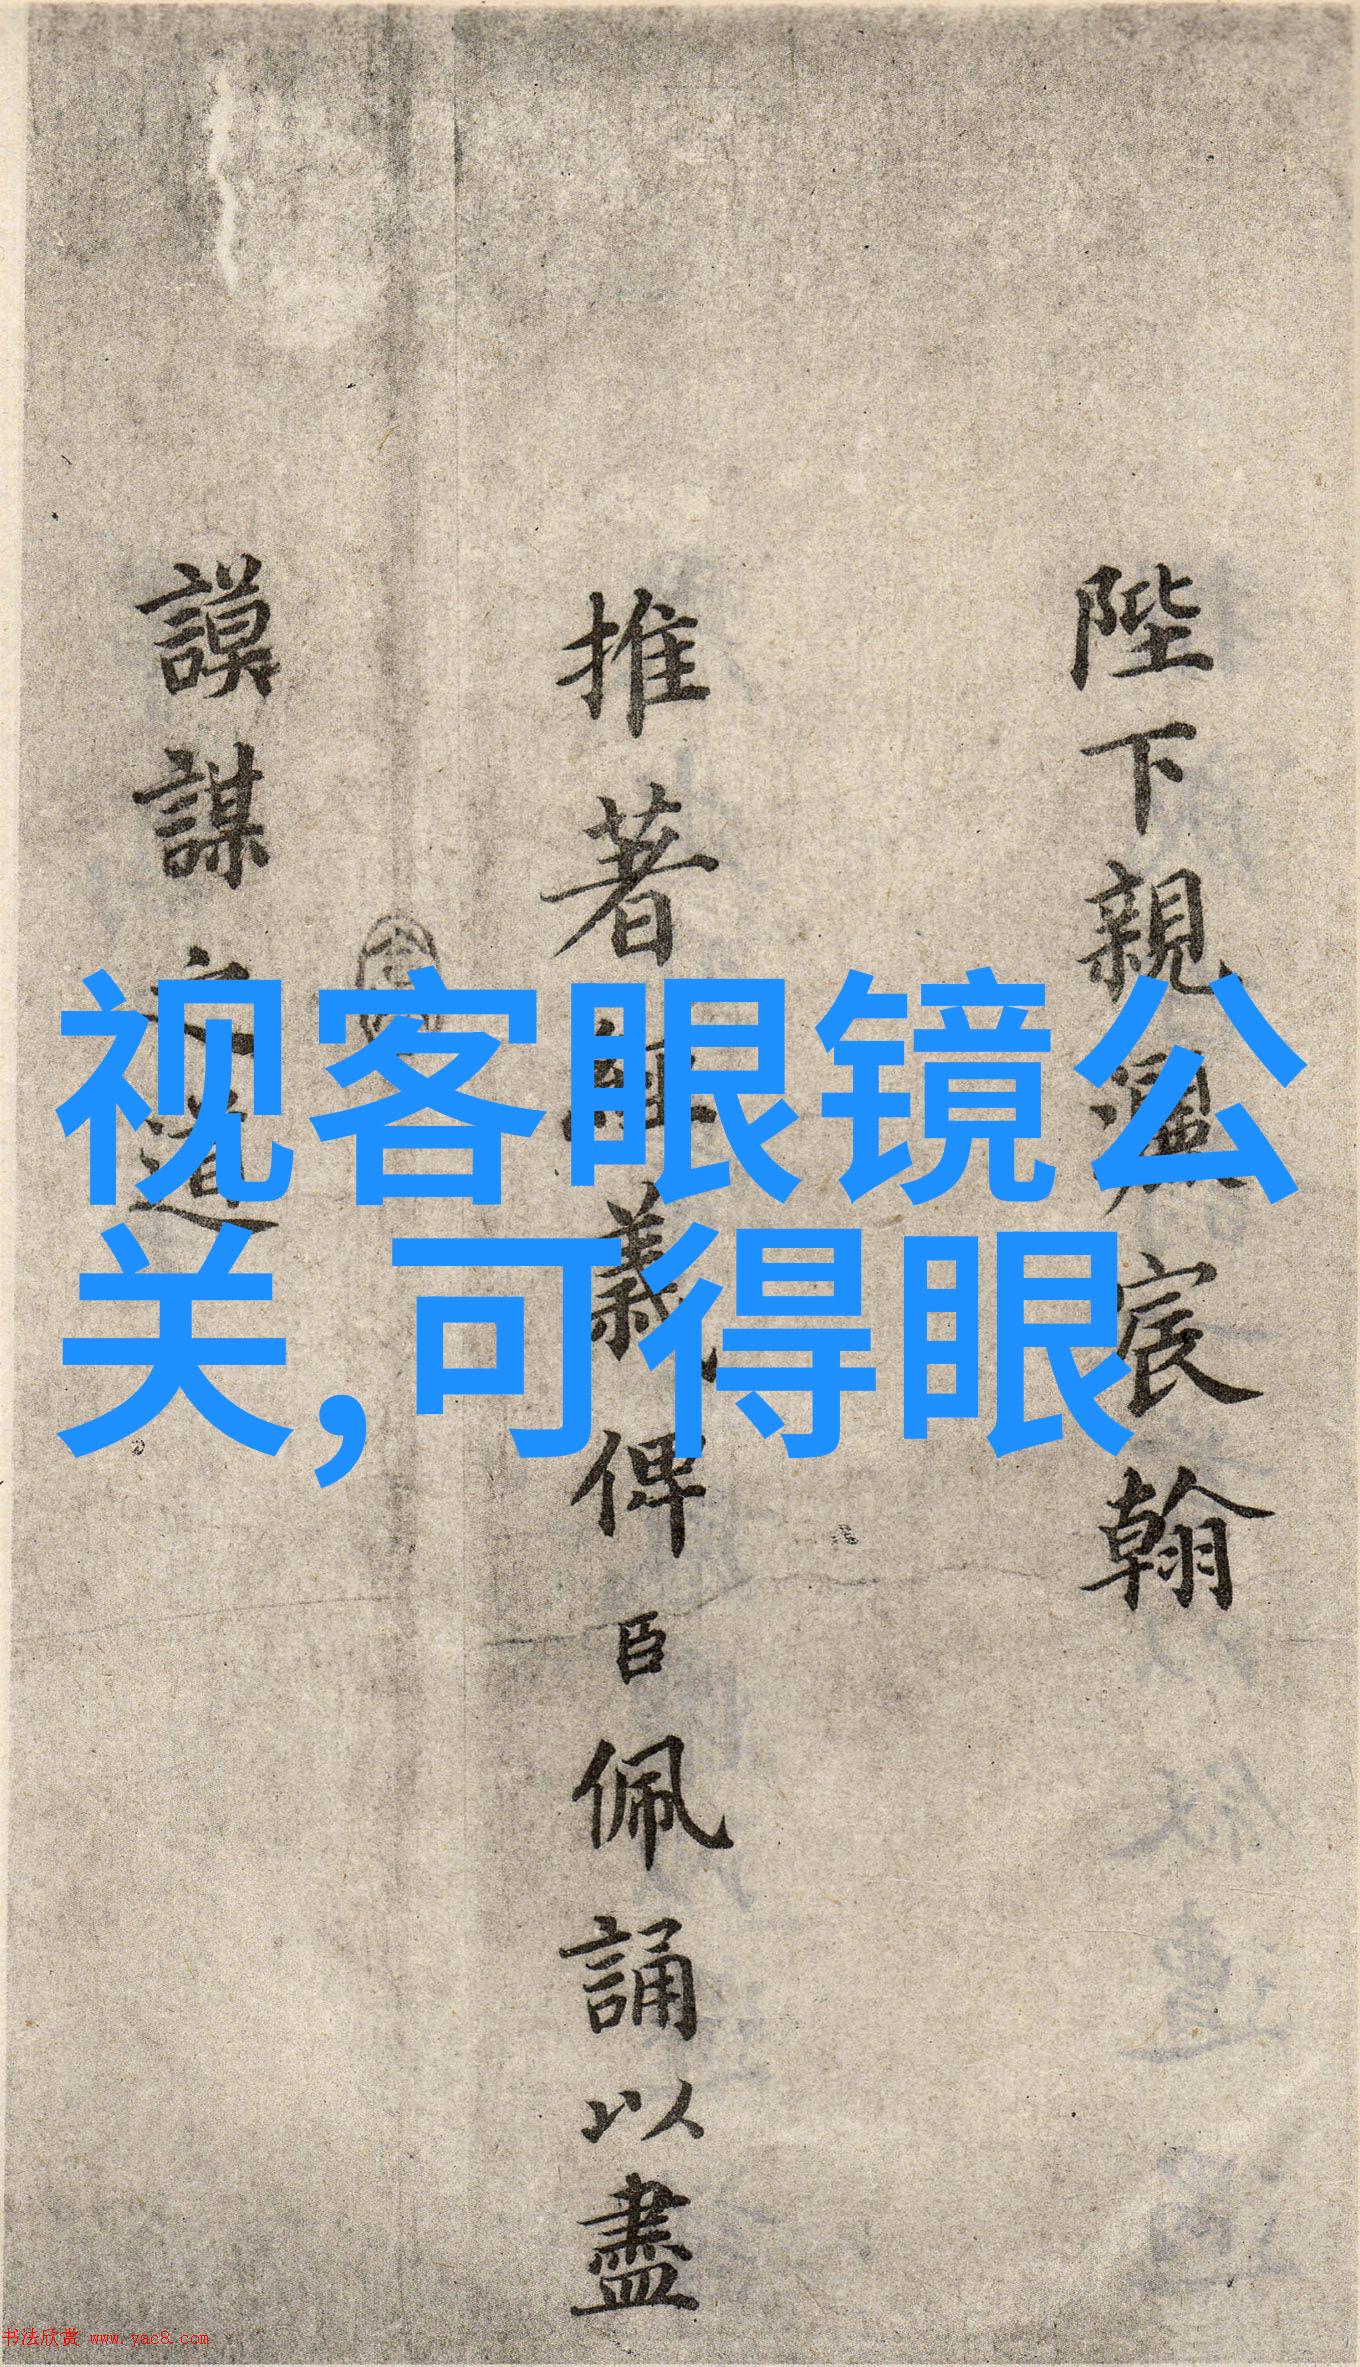 陛下親灑宸翰
推著經義俾臣佩誦以盡
謨謀之道
视客眼镜公
关,可得眼
书法欣赏 www.yac8.com